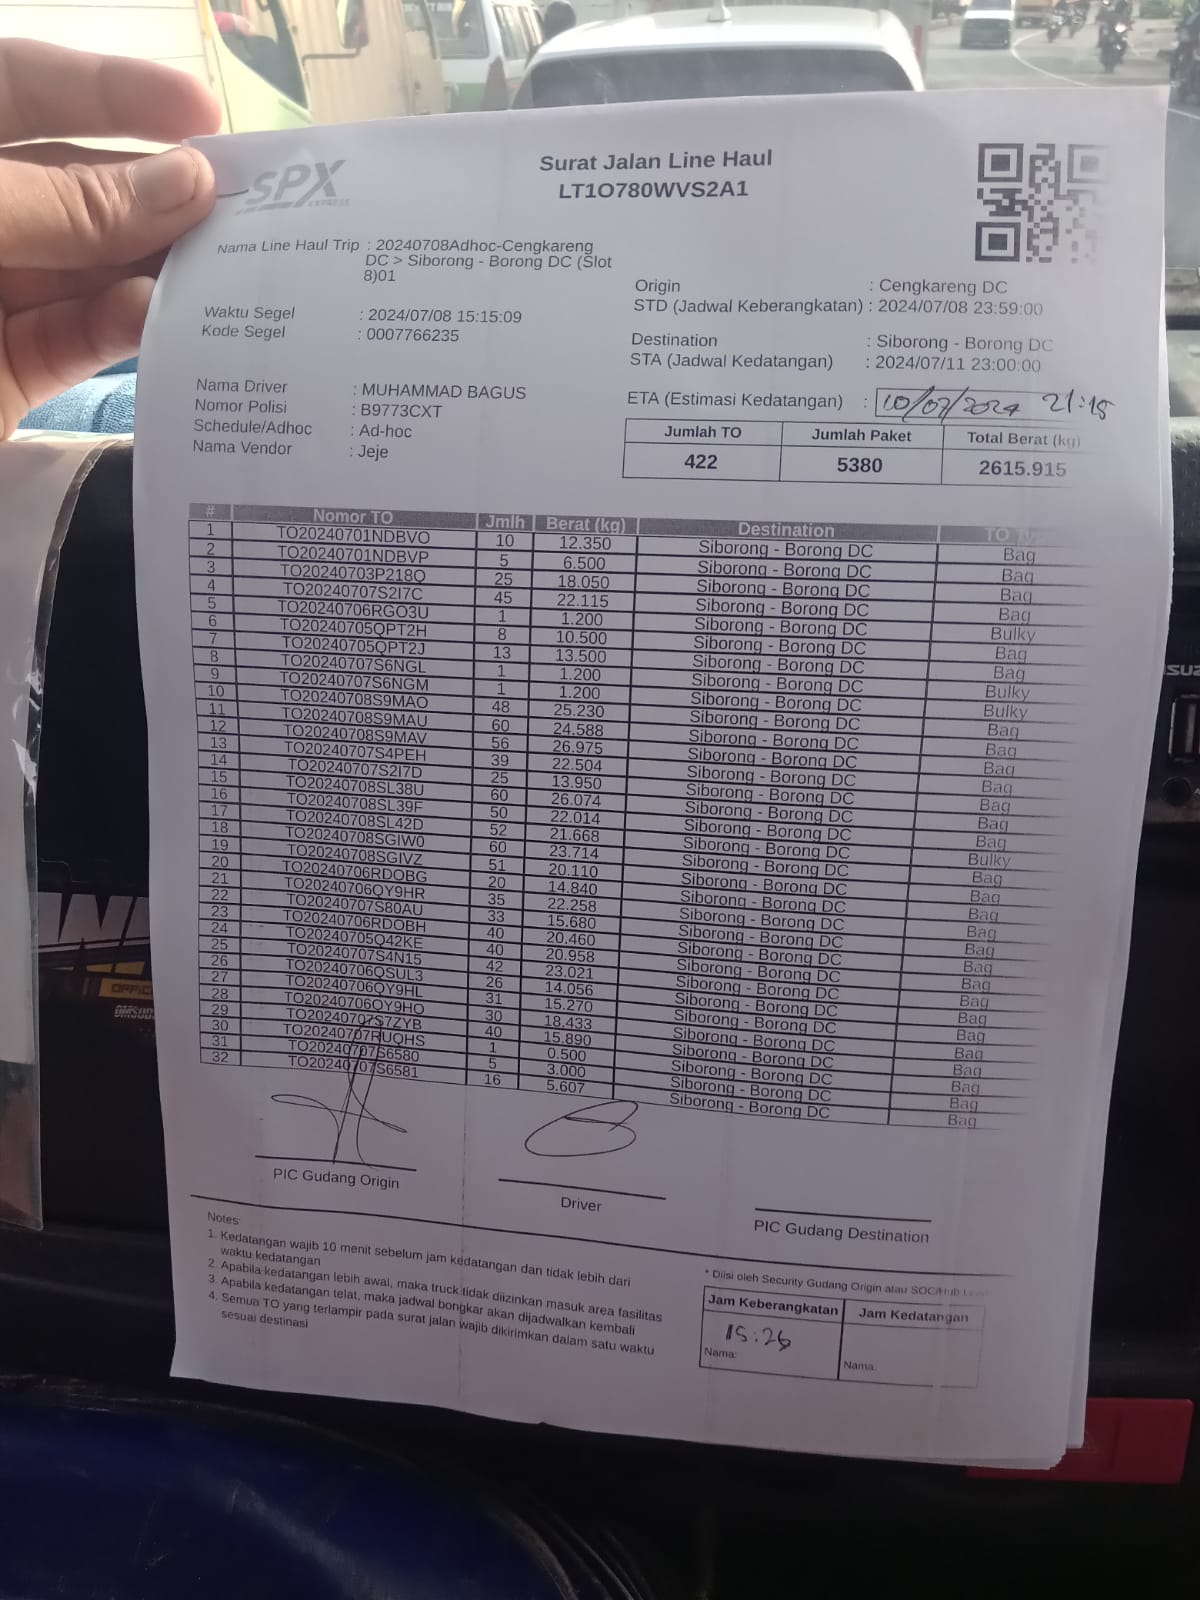 SPX
EXPRESS
Surat Jalan Line Haul
LT1O780WVS2A1
Nama Line Haul Trip : 20240708Adhoc-Cengkareng
DC > Siborong - Borong DC (Slot
8)01
Waktu Segel : 2024/07/08 15:15:09
Kode Segel : 0007766235
Nama Driver : MUHAMMAD BAGUS
Nomor Polisi : B9773CXT
Schedule/Adhoc : Ad-hoc
Nama Vendor : Jeje
Origin : Cengkareng DC
STD (Jadwal Keberangkatan) : 2024/07/08 23:59:00
Destination : Siborong - Borong DC
STA (Jadwal Kedatangan) : 2024/07/11 23:00:00
ETA (Estimasi Kedatangan) : 10/07/2024 21:15
Jumlah TO Jumlah Paket Total Berat (kg)
422 5380 2615.915
# Nomor TO Jmlh Berat (kg) Destination TO
1 TO20240701NDBVO 10 12.350 Siborong - Borong DC Bag
2 TO20240701NDBVP 5 6.500 Siborong - Borong DC Bag
3 TO20240703P218Q 25 18.050 Siborong - Borong DC Bag
4 TO20240707S2I7C 45 22.115 Siborong - Borong DC Bag
5 TO20240706RGO3U 1 1.200 Siborong - Borong DC Bulky
6 TO20240705QPT2H 8 10.500 Siborong - Borong DC Bag
7 TO20240705QPT2J 13 13.500 Siborong - Borong DC Bag
8 TO20240707S6NGL 1 1.200 Siborong - Borong DC Bulky
9 TO20240707S6NGM 1 1.200 Siborong - Borong DC Bulky
10 TO20240708S9MAO 48 25.230 Siborong - Borong DC Bag
11 TO20240708S9MAU 60 24.588 Siborong - Borong DC Bag
12 TO20240708S9MAV 56 26.975 Siborong - Borong DC Bag
13 TO20240707S4PEH 39 22.504 Siborong - Borong DC Bag
14 TO20240707S2I7D 25 13.950 Siborong - Borong DC Bag
15 TO20240708SL38U 60 26.074 Siborong - Borong DC Bag
16 TO20240708SL39F 50 22.014 Siborong - Borong DC Bag
17 TO20240708SL42D 52 21.668 Siborong - Borong DC Bulky
18 TO20240708SGIW0 60 23.714 Siborong - Borong DC Bag
19 TO20240708SGIVZ 51 20.110 Siborong - Borong DC Bag
20 TO20240706RDOBG 20 14.840 Siborong - Borong DC Bag
21 TO20240706QY9HR 35 22.258 Siborong - Borong DC Bag
22 TO20240707S80AU 33 15.680 Siborong - Borong DC Bag
23 TO20240706RDOBH 40 20.460 Siborong - Borong DC Bag
24 TO20240705Q42KE 40 20.958 Siborong - Borong DC Bag
25 TO20240707S4N15 42 23.021 Siborong - Borong DC Bag
26 TO20240706QSUL3 26 14.056 Siborong - Borong DC Bag
27 TO20240706QY9HL 31 15.270 Siborong - Borong DC Bag
28 TO20240706QY9HO 30 18.433 Siborong - Borong DC Bag
29 TO20240707S7ZYB 40 15.890 Siborong - Borong DC Bag
30 TO20240707RUQHS 1 0.500 Siborong - Borong DC Bag
31 TO20240707S6580 5 3.000 Siborong - Borong DC Bag
32 TO20240707S6581 16 5.607 Siborong - Borong DC Bag
PIC Gudang Origin
Driver
PIC Gudang Destination
Notes:
1. Kedatangan wajib 10 menit sebelum jam kedatangan dan tidak lebih dari
waktu kedatangan
2. Apabila kedatangan lebih awal, maka truck tidak diizinkan masuk area fasilitas
3. Apabila kedatangan telat, maka jadwal bongkar akan dijadwalkan kembali
4. Semua TO yang terlampir pada surat jalan wajib dikirimkan dalam satu waktu
sesuai destinasi
* Diisi oleh Security Gudang Origin atau SOC/Hub Lead
Jam Keberangkatan Jam Kedatangan
15:26
Nama: Nama: